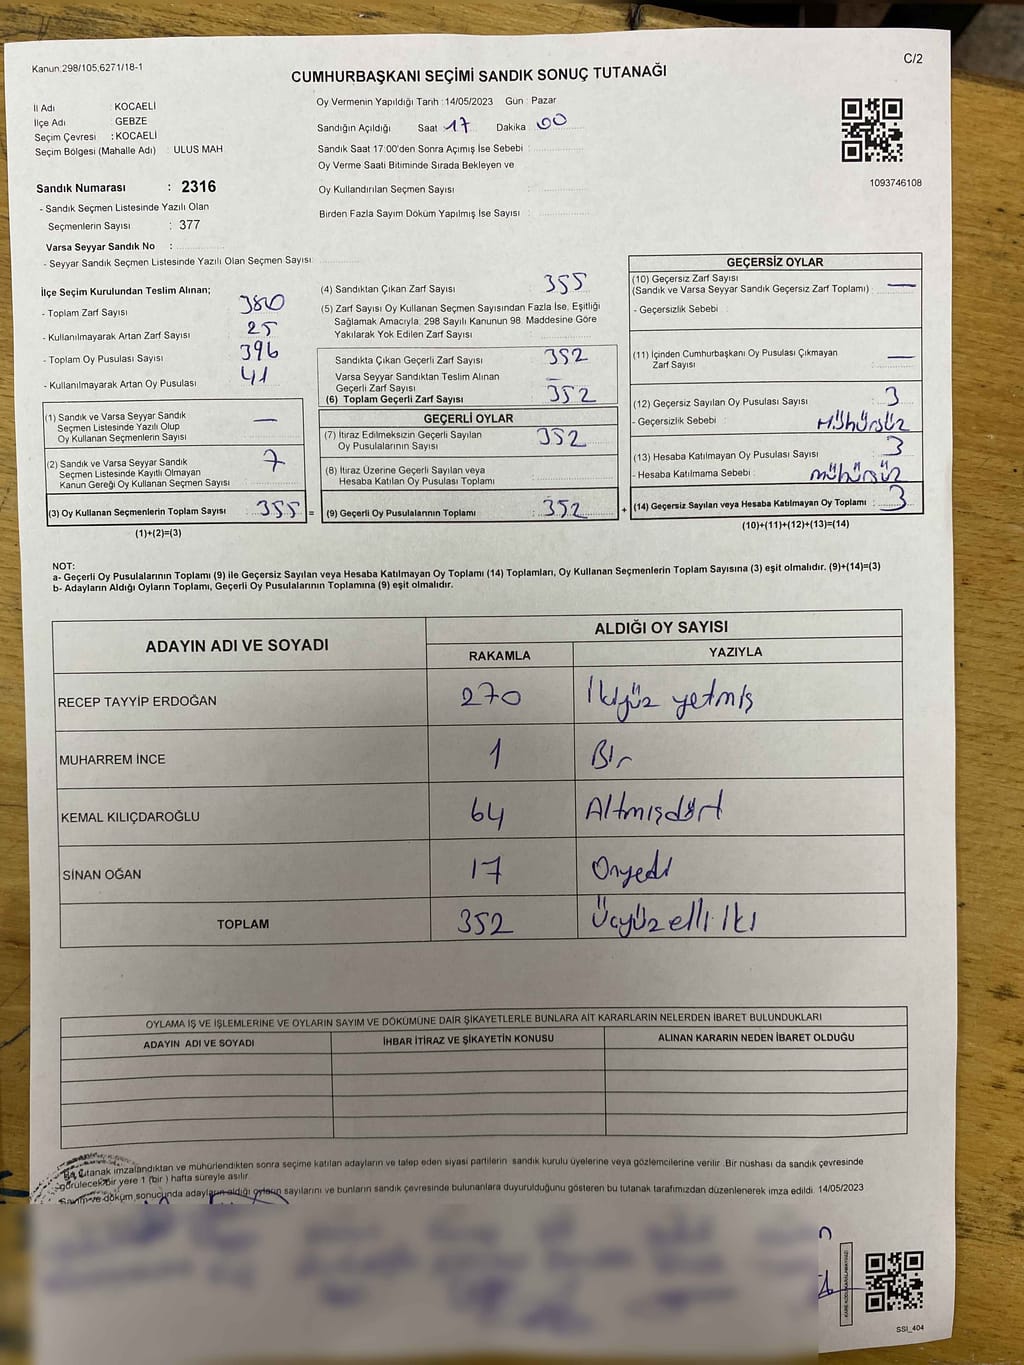 Kanun:298/105,6271/18-1
C/2
CUMHURBAŞKANI SEÇİMİ SANDIK SONUÇ TUTANAĞI
İl Adı : KOCAELİ
İlçe Adı : GEBZE
Seçim Çevresi : KOCAELİ
Seçim Bölgesi (Mahalle Adı) : ULUS MAH
Sandık Numarası : 2316
- Sandık Seçmen Listesinde Yazılı Olan
Seçmenlerin Sayısı : 377
Varsa Seyyar Sandık No :
- Seyyar Sandık Seçmen Listesinde Yazılı Olan Seçmen Sayısı:
Oy Vermenin Yapıldığı Tarih : 14/05/2023 Gün : Pazar
Sandığın Açıldığı Saat : 17 Dakika : 00
Sandık Saat 17:00'den Sonra Açımış İse Sebebi :
Oy Verme Saati Bitiminde Sırada Bekleyen ve
Oy Kullandırılan Seçmen Sayısı :
Birden Fazla Sayım Döküm Yapılmış İse Sayısı :
1093746108
İlçe Seçim Kurulundan Teslim Alınan;
- Toplam Zarf Sayısı : 380
- Kullanılmayarak Artan Zarf Sayısı : 25
- Toplam Oy Pusulası Sayısı : 396
- Kullanılmayarak Artan Oy Pusulası : 41
(1) Sandık ve Varsa Seyyar Sandık
Seçmen Listesinde Yazılı Olup
Oy Kullanan Seçmenlerin Sayısı : —
(2) Sandık ve Varsa Seyyar Sandık
Seçmen Listesinde Kayıtlı Olmayan
Kanun Gereği Oy Kullanan Seçmen Sayısı : 7
(3) Oy Kullanan Seçmenlerin Toplam Sayısı : 355 =
(1)+(2)=(3)
(4) Sandıktan Çıkan Zarf Sayısı : 355
(5) Zarf Sayısı Oy Kullanan Seçmen Sayısından Fazla İse, Eşitliği
Sağlamak Amacıyla, 298 Sayılı Kanunun 98. Maddesine Göre
Yakılarak Yok Edilen Zarf Sayısı :
Sandıkta Çıkan Geçerli Zarf Sayısı : 352
Varsa Seyyar Sandıktan Teslim Alınan
Geçerli Zarf Sayısı : —
(6) Toplam Geçerli Zarf Sayısı : 352
GEÇERLİ OYLAR
(7) İtiraz Edilmeksizin Geçerli Sayılan
Oy Pusulalarının Sayısı : 352
(8) İtiraz Üzerine Geçerli Sayılan veya
Hesaba Katılan Oy Pusulası Toplamı :
(9) Geçerli Oy Pusulalarının Toplamı : 352 +
GEÇERSİZ OYLAR
(10) Geçersiz Zarf Sayısı
(Sandık ve Varsa Seyyar Sandık Geçersiz Zarf Toplamı) : —
- Geçersizlik Sebebi :
(11) İçinden Cumhurbaşkanı Oy Pusulası Çıkmayan
Zarf Sayısı : —
(12) Geçersiz Sayılan Oy Pusulası Sayısı : 3
- Geçersizlik Sebebi : Mühürsüz
(13) Hesaba Katılmayan Oy Pusulası Sayısı : 3
- Hesaba Katılmama Sebebi : mühürsüz
(14) Geçersiz Sayılan veya Hesaba Katılmayan Oy Toplamı : 3
(10)+(11)+(12)+(13)=(14)
NOT:
a- Geçerli Oy Pusulalarının Toplamı (9) ile Geçersiz Sayılan veya Hesaba Katılmayan Oy Toplamı (14) Toplamları, Oy Kullanan Seçmenlerin Toplam Sayısına (3) eşit olmalıdır. (9)+(14)=(3)
b- Adayların Aldığı Oyların Toplamı, Geçerli Oy Pusulalarının Toplamına (9) eşit olmalıdır.
ADAYIN ADI VE SOYADI ALDIĞI OY SAYISI
RAKAMLA YAZIYLA
RECEP TAYYİP ERDOĞAN 270 İkiyüz yetmiş
MUHARREM İNCE 1 Bir
KEMAL KILIÇDAROĞLU 64 Altmışdört
SİNAN OĞAN 17 Onyedi
TOPLAM 352 Üçyüz elli iki
OYLAMA İŞ VE İŞLEMLERİNE VE OYLARIN SAYIM VE DÖKÜMÜNE DAİR ŞİKAYETLERLE BUNLARA AİT KARARLARIN NELERDEN İBARET BULUNDUKLARI
ADAYIN ADI VE SOYADI İHBAR İTİRAZ VE ŞİKAYETİN KONUSU ALINAN KARARIN NEDEN İBARET OLDUĞU
Bu tutanak imzalandıktan ve mühürlendikten sonra seçime katılan adayların ve talep eden siyasi partilerin sandık kurulu üyelerine veya gözlemcilerine verilir. Bir nüshası da sandık çevresinde
görülecek bir yere 1 (bir) hafta süreyle asılır.
Sayım ve döküm sonucunda adayların aldığı oyların sayılarını ve bunların sandık çevresinde bulunanlara duyurulduğunu gösteren bu tutanak tarafımızdan düzenlenerek imza edildi. 14/05/2023
SSI_404